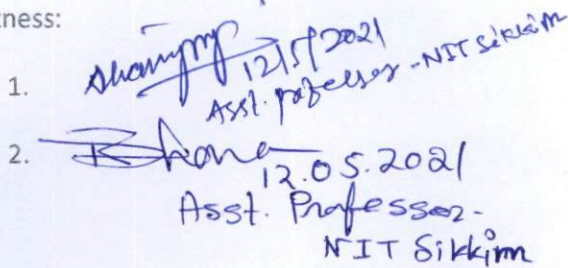 tness:
1.
12/5/2021
Asst. professor - NIT Sikkim
2.
12.05.2021
Asst. Professor -
NIT Sikkim